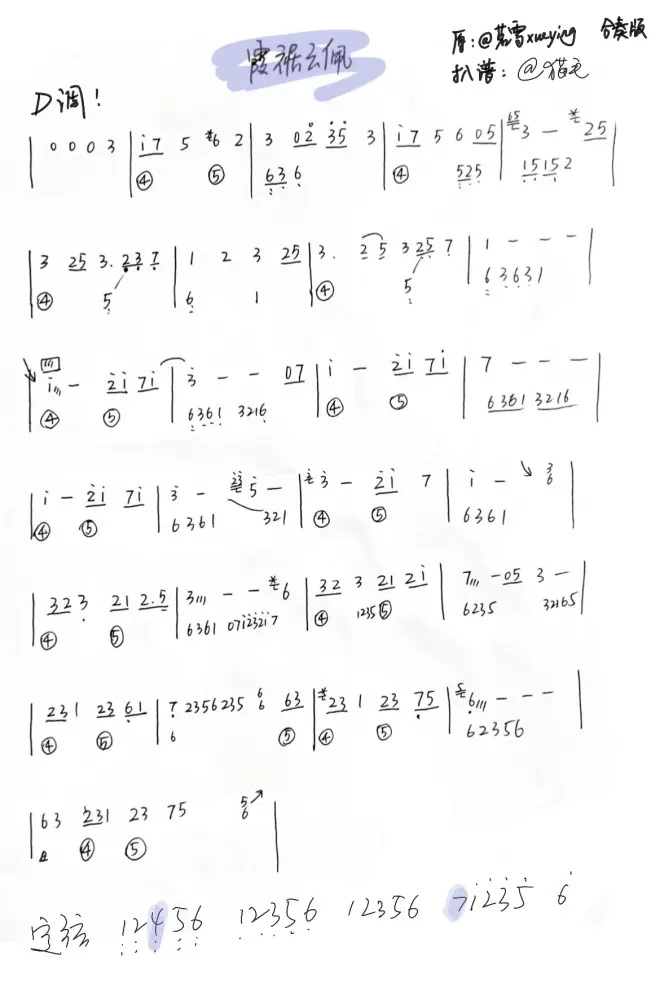 霞裾云佩
原:@慕雪xueying 合奏版
扒谱:@猫毛
D调!
| 0 0 0 3 | i̇7 5 *6 2 | 3 02̇ 3̇5̇ 3 | i̇7 5 6 05 | 65 3 — * 25 |
④ ⑤ 636 ④ 525 15152
| 3 25 3. 237 | 1 2 3 25 | 3. 25 3 25 7 | 1 - - - |
④ 5 6 1 ④ 5 63631
i̇,,, - 2̇i̇ 7i̇ | 3̇ - - 07 | i̇ - 2̇i̇ 7i̇ | 7 - - - |
④ ⑤ 6361 3216 ④ ⑤ 6361 3216
| i̇ - 2̇i̇ 7i̇ | 3̇ - 2̇3̇ 5̇ - | 2̇ 3̇ - 2̇i̇ 7 | i̇ - ↘ 3 6 |
④ ⑤ 6361 321 ④ ⑤ 6361
| 323 21 2.5 | 3,,, - - *6 | 32 3 21 2i̇ | 7,,, -05 3 - |
④ ⑤ 6361 07i̇2̇3̇2̇i̇7 ④ 1235⑤ 6235 32165
| 231 23 61 | 7 2356235 6 6 63 | *23 1 23 75 | 5 6,,, - - - |
④ ⑤ 6 ⑤ ④ ⑤ 62356
| 63 231 23 75 5 6↗ |
④ ⑤
定弦 12456 12356 12356 7i̇2̇3̇5̇ 6̇